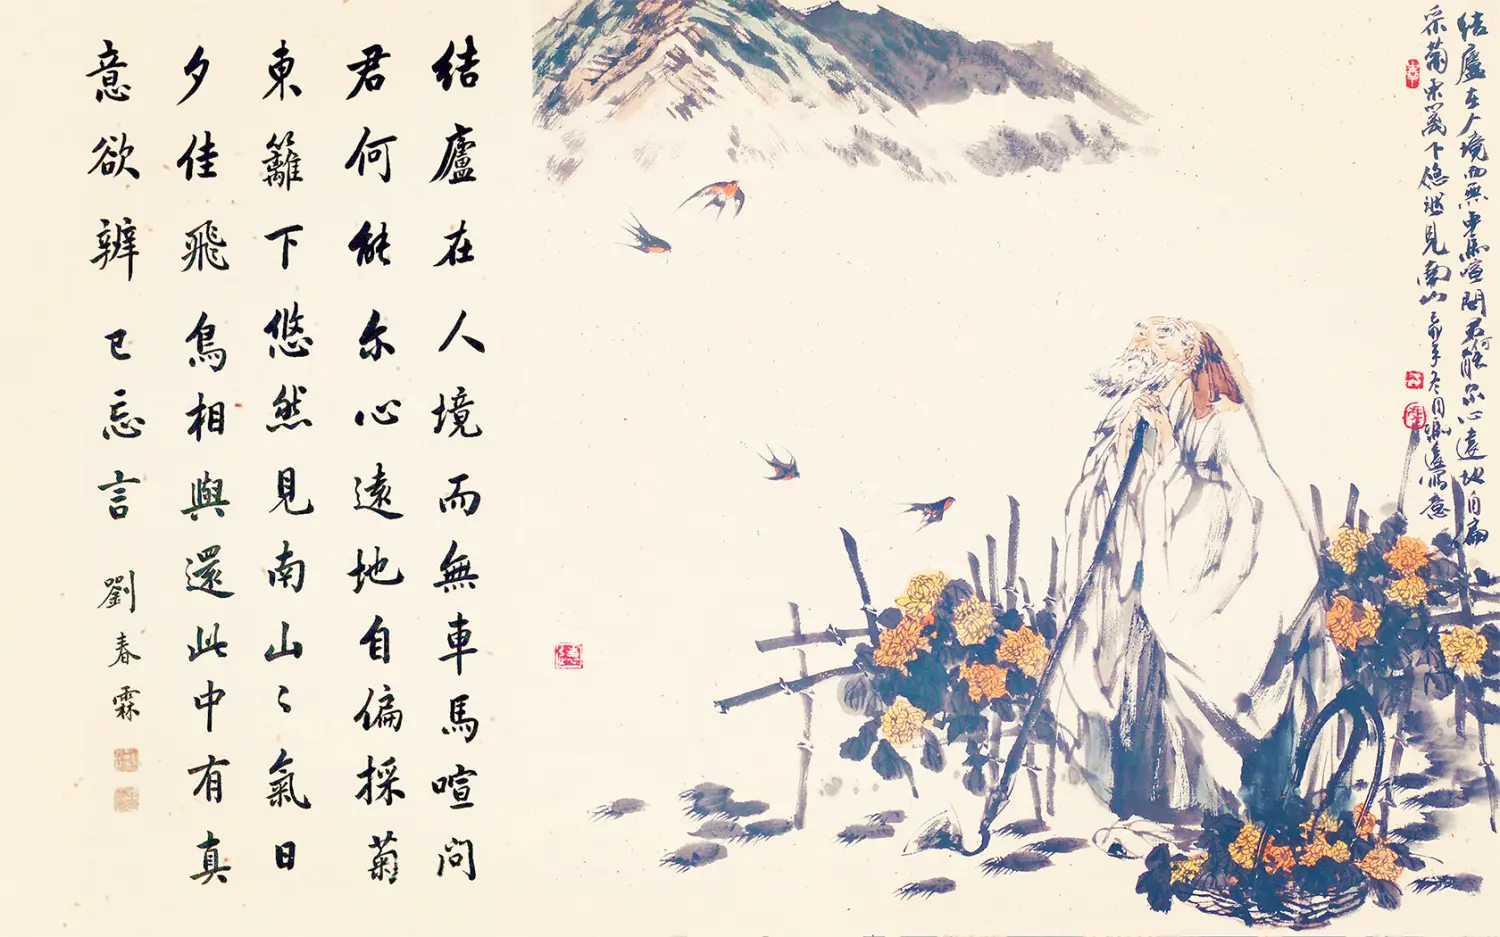 結廬在人境而無車馬喧問
君何能尔心遠地自偏採菊
東籬下悠然見南山〻氣日
夕佳飛鳥相與還此中有真
意欲辨已忘言 劉春霖
结廬在人境而無車馬喧問君何能尔心遠地自偏
采菊東篱下悠然見南山 年冬月馮遠寫意